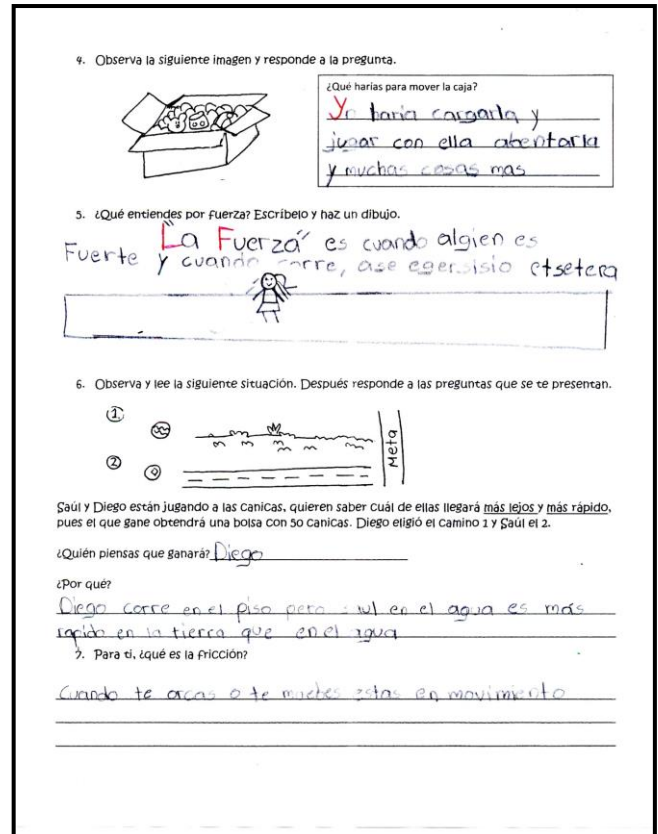 4. Observa la siguiente imagen y responde a la pregunta.
¿Qué harías para mover la caja?
Yo haria cargarla y
jugar con ella abentarla
y muchas cosas mas
5. ¿Qué entiendes por fuerza? Escríbelo y haz un dibujo.
"La Fuerza" es cuando algien es
Fuerte y cuando corre, ase egersisio etsetera
6. Observa y lee la siguiente situación. Después responde a las preguntas que se te presentan.
1
2
Meta
Saúl y Diego están jugando a las canicas, quieren saber cuál de ellas llegará más lejos y más rápido,
pues el que gane obtendrá una bolsa con 50 canicas. Diego eligió el camino 1 y Saúl el 2.
¿Quién piensas que ganará? Diego
¿Por qué?
Diego corre en el piso pero en el agua es más
rapido en la tierra que en el agua
7. Para ti, ¿qué es la fricción?
Cuando te o te muebes estas en movimiento